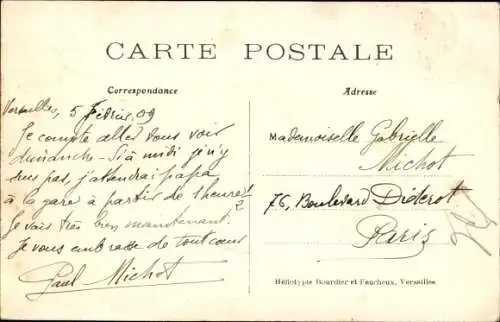 CARTE POSTALE
Correspondance
Versailles, 5 Février 09
Je compte aller vous voir
dimanche. Si à midi je n'y
suis pas, j'attendrai papa
à la gare à partir de 1 heure
Je vais très bien maintenant.
Je vous embrasse de tout cœur
Paul Michot
Adresse
Mademoiselle Gabrielle
Michot
76, Boulevard Diderot
Paris
Héliotypie Bourdier et Faucheux, Versailles.